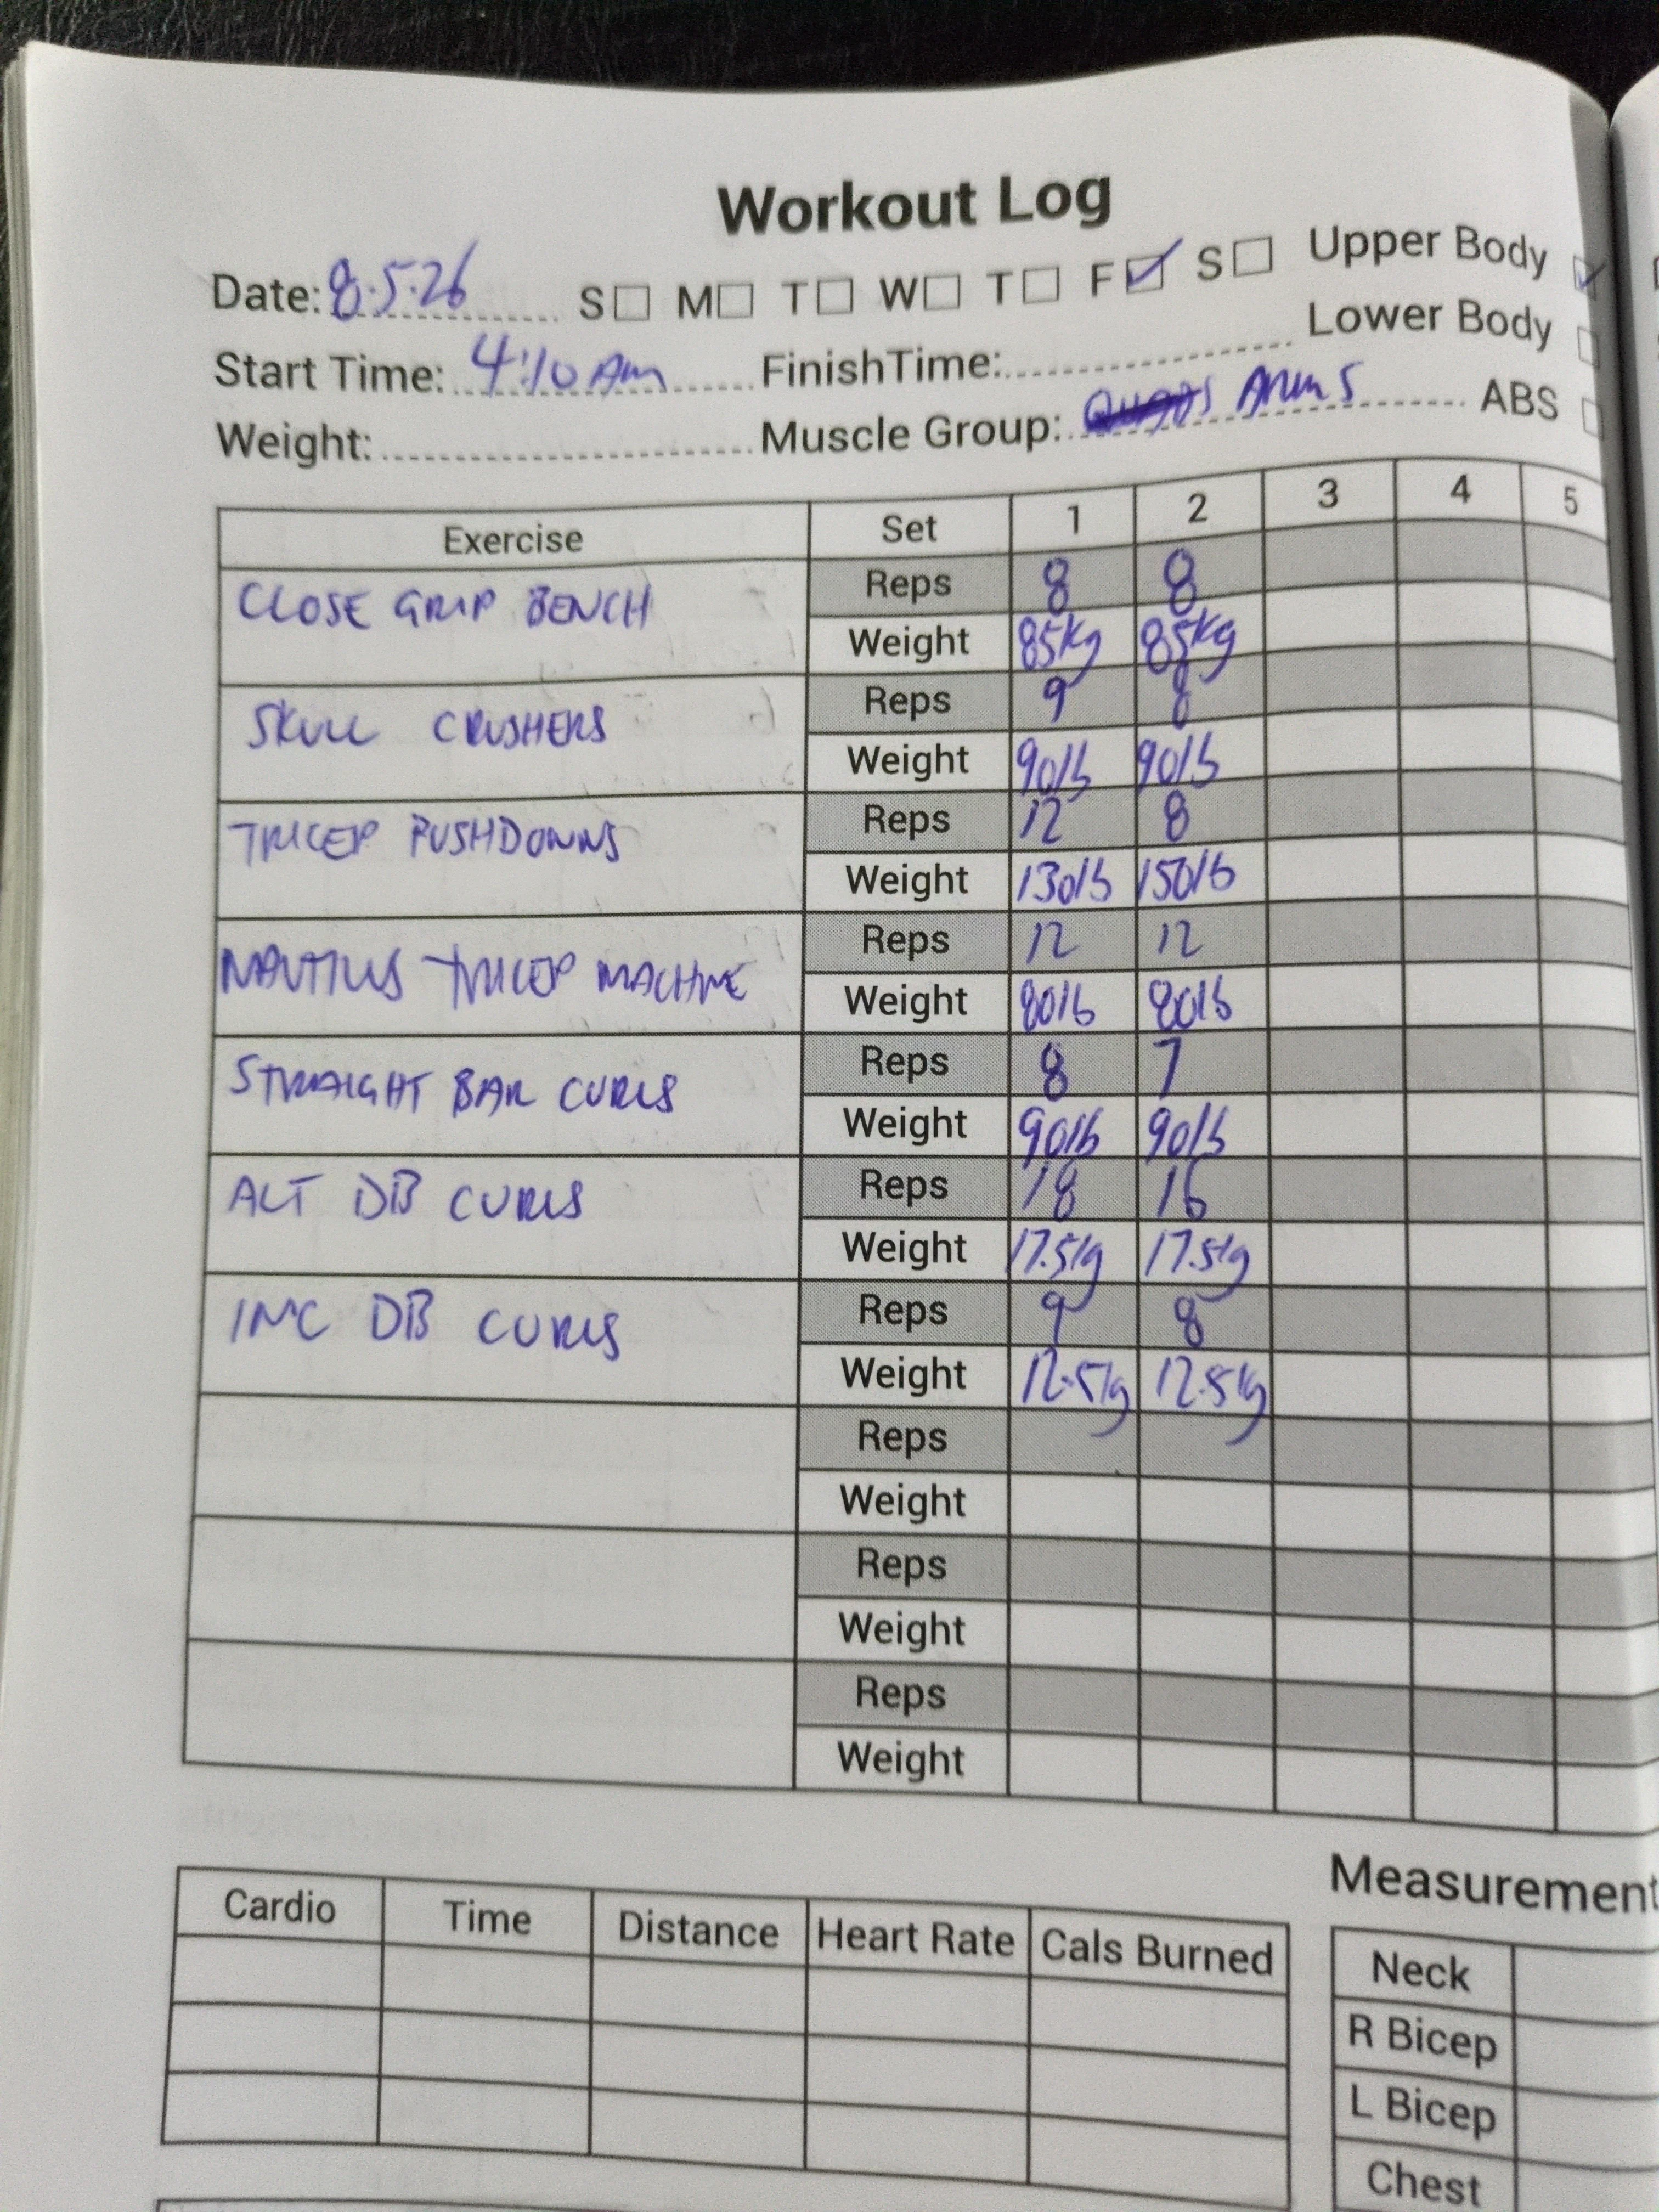 Workout Log
Date: 8.5.26 S M T W T F S Upper Body
Start Time: 4:10 Am FinishTime: Lower Body
Weight: Muscle Group: Arms ABS
Exercise Set 1 2 3 4 5
CLOSE GRIP BENCH Reps 8 8
Weight 85kg 85kg
SKULL CRUSHERS Reps 9 8
Weight 90lb 90lb
TRICEP PUSHDOWNS Reps 12 8
Weight 130lb 150lb
NAUTILUS TRICEP MACHINE Reps 12 12
Weight 80lb 80lb
STRAIGHT BAR CURLS Reps 8 7
Weight 90lb 90lb
ALT DB CURLS Reps 18 16
Weight 17.5kg 17.5kg
INC DB CURLS Reps 9 8
Weight 12.5kg 12.5kg
Reps
Weight
Reps
Weight
Reps
Weight
Measurement
Cardio Time Distance Heart Rate Cals Burned
Neck
R Bicep
L Bicep
Chest